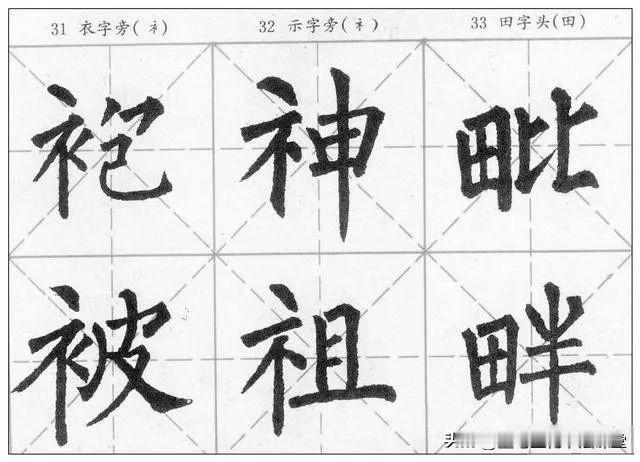 31 衣字旁(衤) 32 示字旁(礻) 33 田字头(田)
袍 神 毗
被 祖 畔